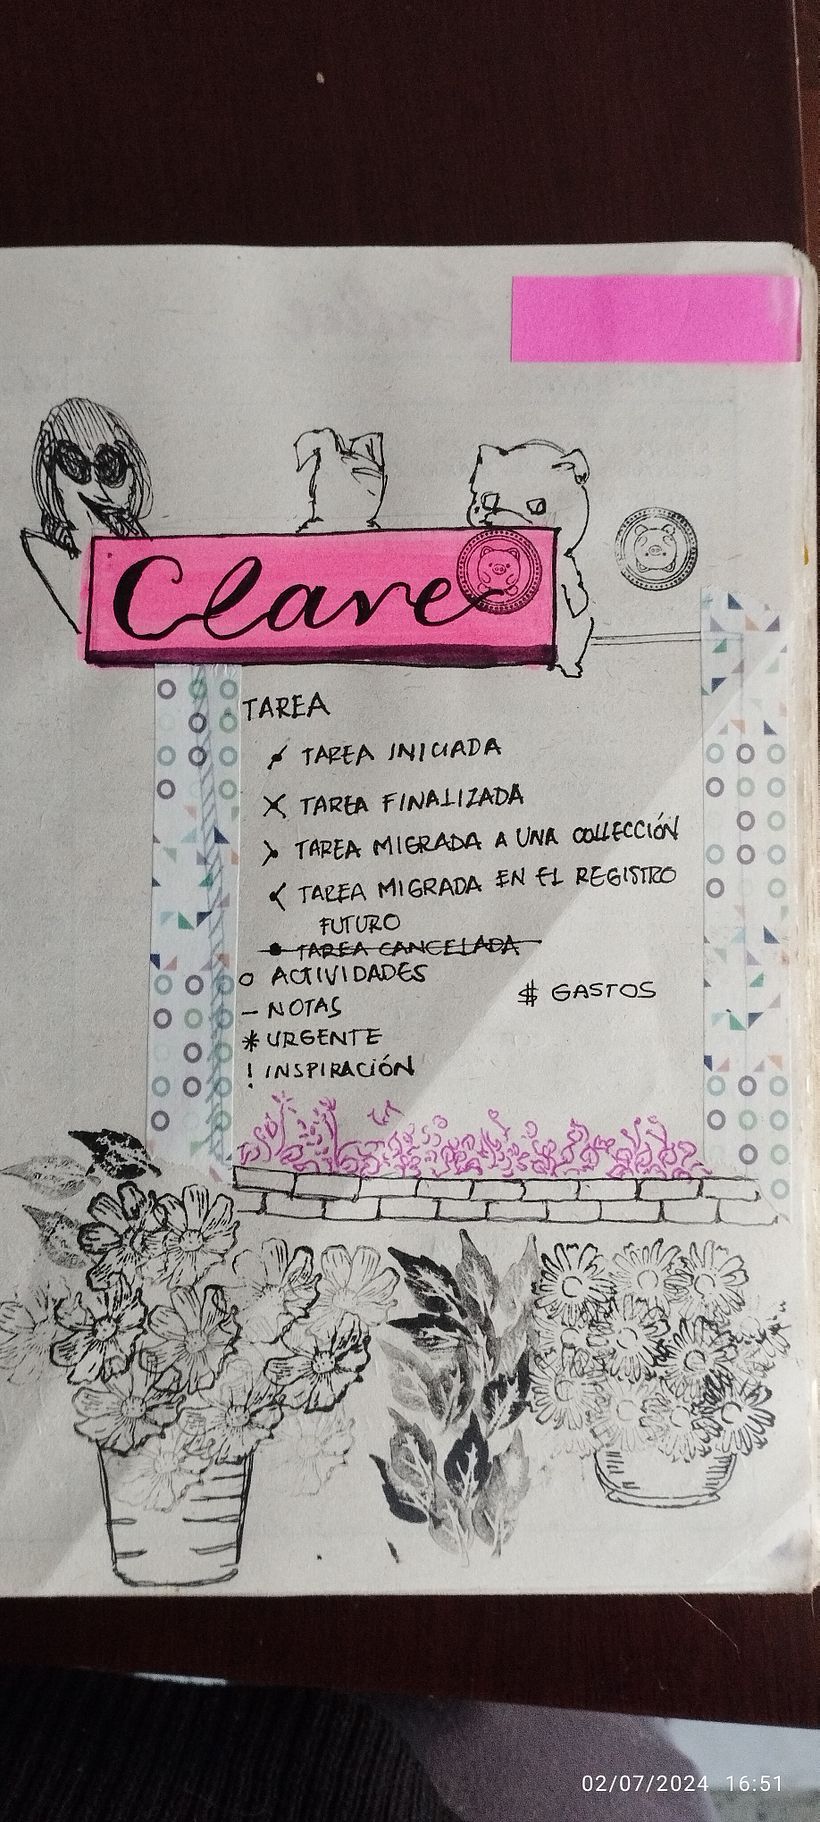 Clave
TAREA
TAREA INICIADA
× TAREA FINALIZADA
> TAREA MIGRADA A UNA COLLECCIÓN
< TAREA MIGRADA EN EL REGISTRO
FUTURO
• TAREA CANCELADA
o ACTIVIDADES
$ GASTOS
– NOTAS
* URGENTE
! INSPIRACIÓN
02/07/2024 16:51